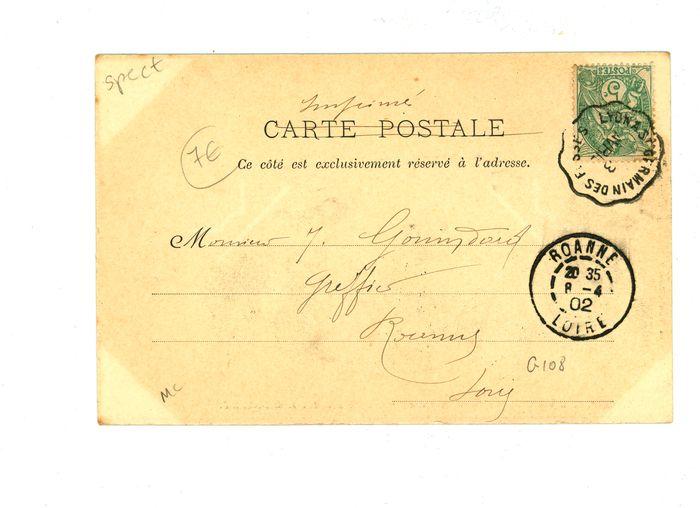 spect
Imprimé
CARTE POSTALE
7€
Ce côté est exclusivement réservé à l'adresse.
POSTES
5
LYON A ST GERMAIN DES F.
Monsieur J.
Greffier
Roanne
Loire
ROANNE
20 35
8 -4
02
LOIRE
G108
MC